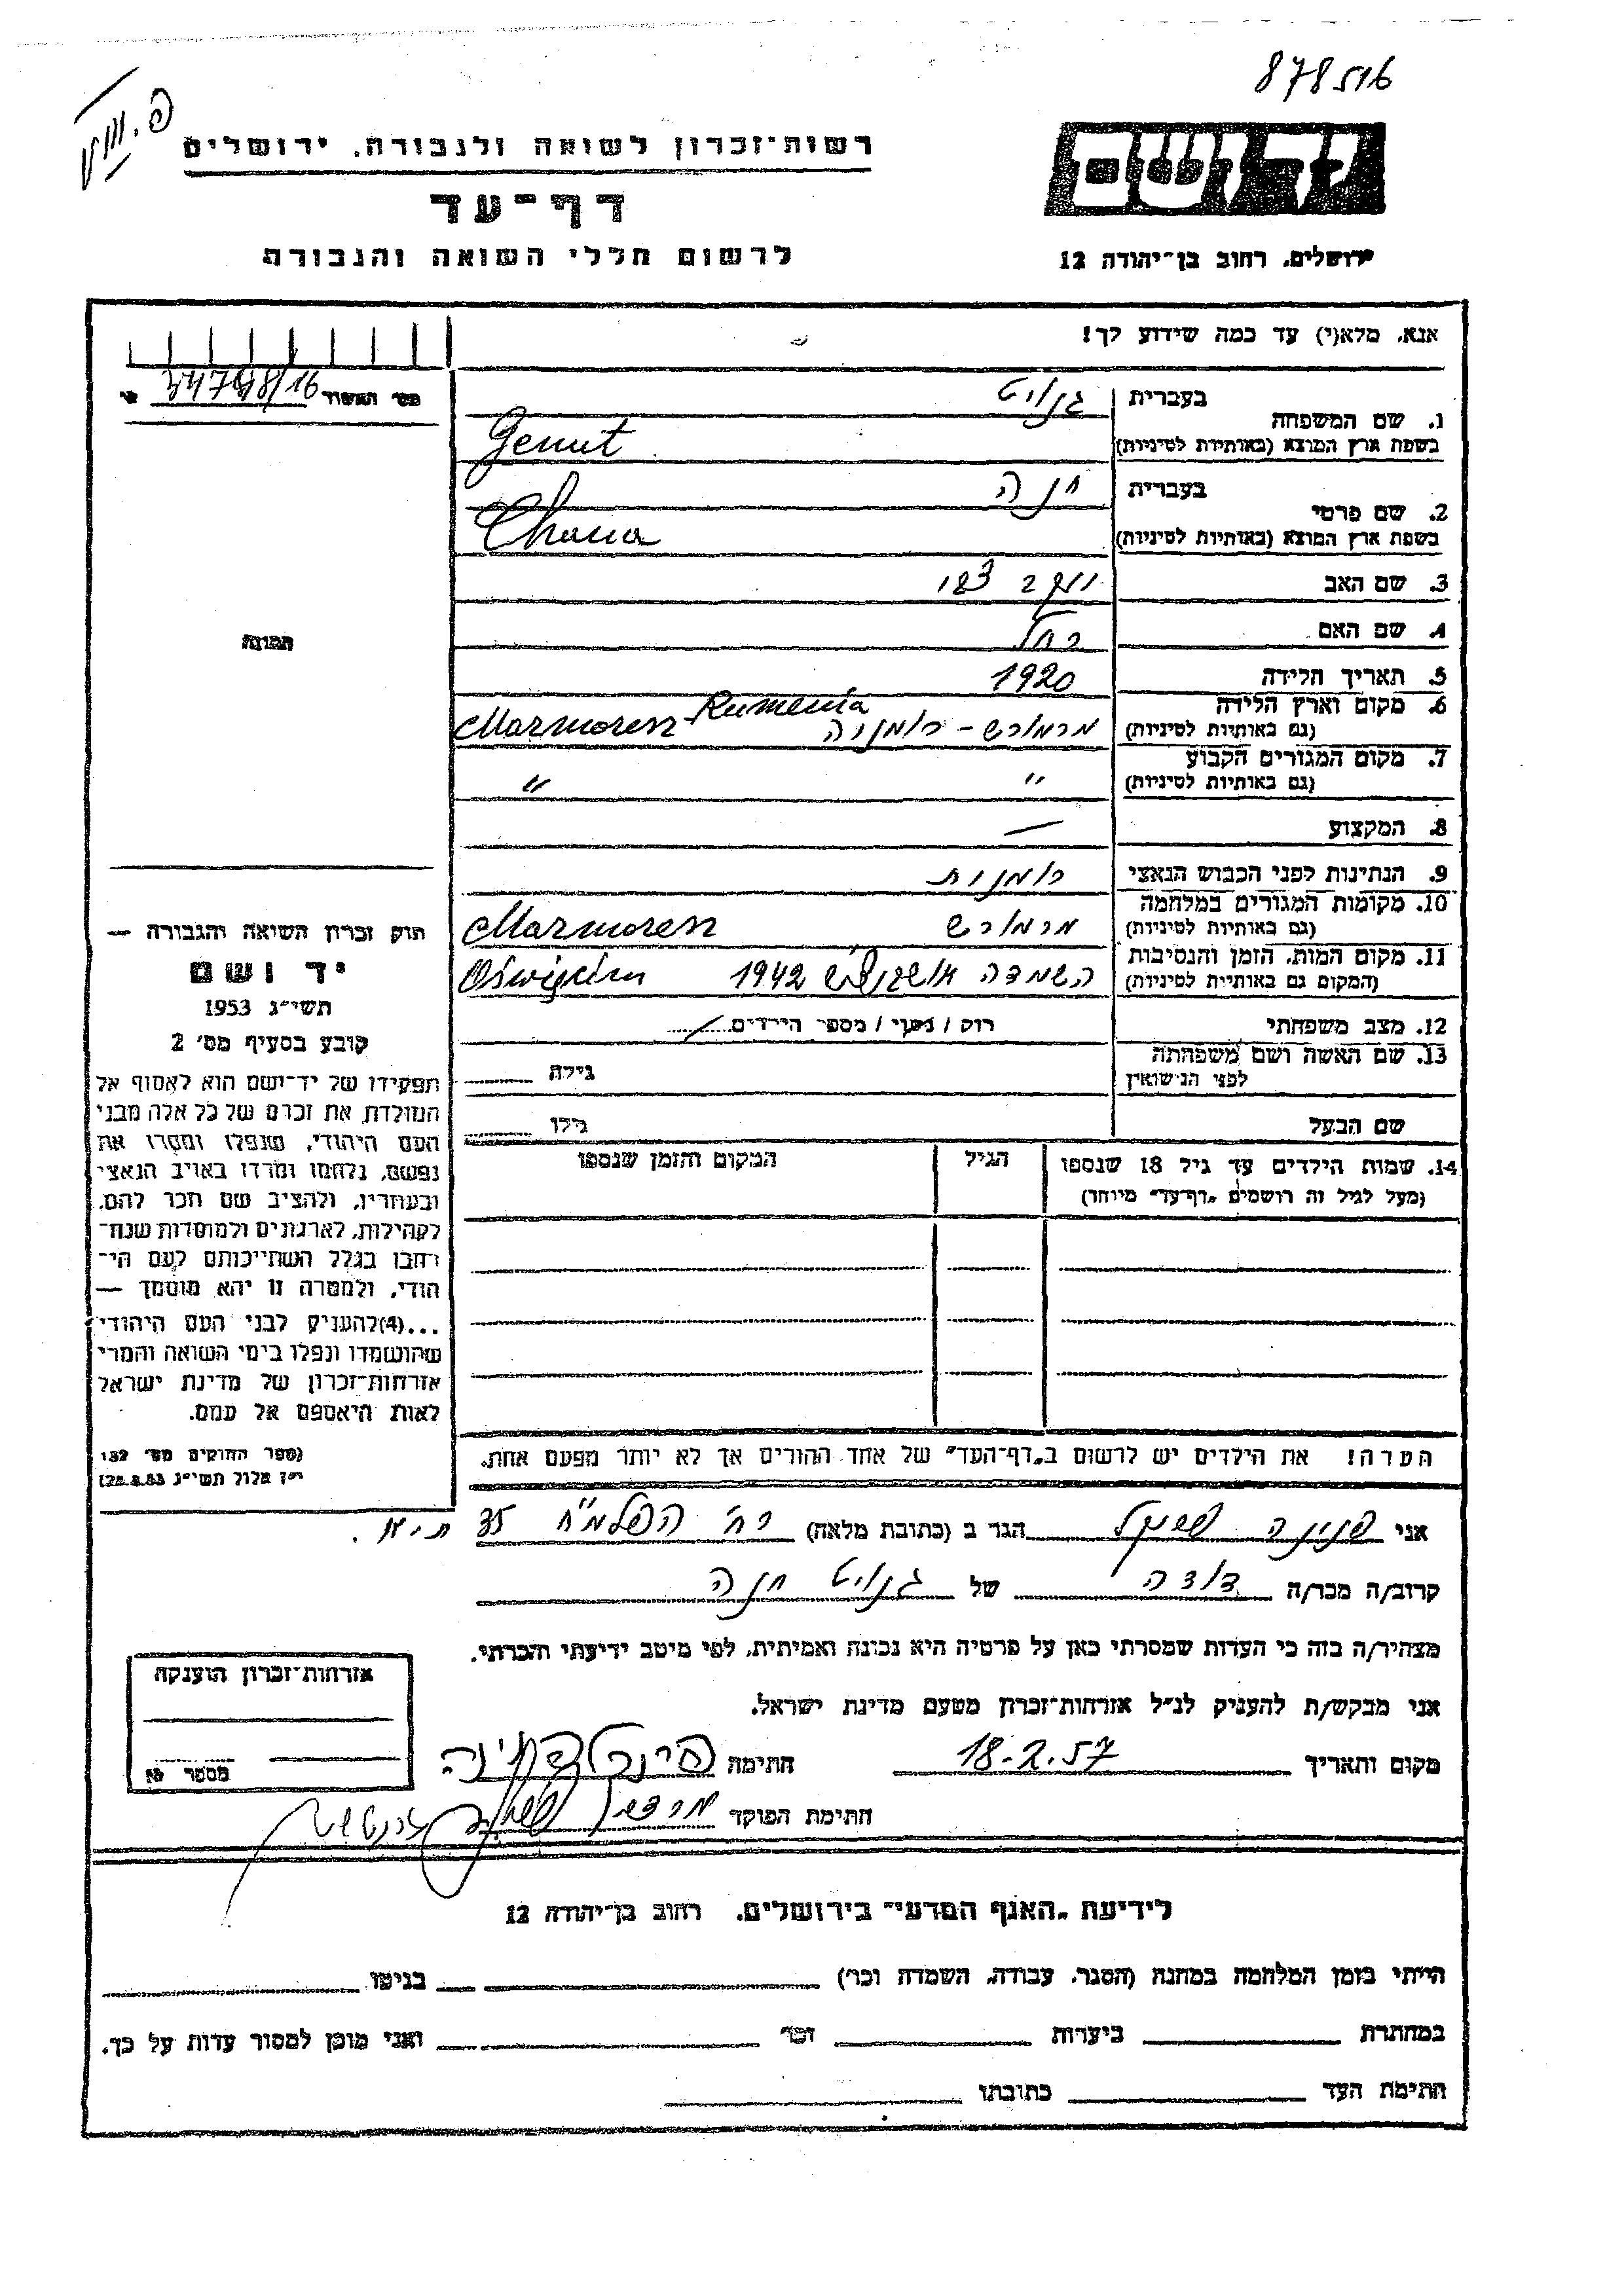 878516
רשות־זכרון לשואה ולגבורה, ירושלים
דף־עד
לרשום חללי השואה והגבורה
יד ושם
ירושלים, רחוב בן־יהודה 12
אנא, מלא(י) עד כמה שידוע לך!
מס' האשור
1. שם המשפחה
בעברית
גנוט
בשפת ארץ המוצא (באותיות לטיניות)
Genut
2. שם פרטי
בעברית
חנה
בשפת ארץ המוצא (באותיות לטיניות)
Chana
3. שם האב
4. שם האם
רחל
5. תאריך הלידה
1920
6. מקום וארץ הלידה
(גם באותיות לטיניות)
מרמורש - רומניה Marmoresz - Rumenia
7. מקום המגורים הקבוע
(גם באותיות לטיניות)
" "
8. המקצוע
—
9. הנתינות לפני הכבוש הנאצי
רומנית
10. מקומות המגורים במלחמה
(גם באותיות לטיניות)
מרמורש Marmoresz
11. מקום המות, הזמן והנסיבות
(המקום גם באותיות לטיניות)
השמדה 1942 Oświęcim
12. מצב משפחתי
רווק / נשוי / מספר הילדים
13. שם האשה ושם משפחתה
לפני הנישואין
גילה
שם הבעל
גילו
14. שמות הילדים עד גיל 18 שנספו
(מעל לגיל זה רושמים "דף־עד" מיוחד)
הגיל
המקום והזמן שנספו
הערה! את הילדים יש לרשום ב"דף־העד" של אחד ההורים אך לא יותר מפעם אחת.
תמונה
חוק זכרון השואה והגבורה —
יד ושם
תשי"ג 1953
קובע בסעיף מס' 2
תפקידו של יד־ושם הוא לאסוף אל
המולדת את זכרם של כל אלה מבני
העם היהודי, שנפלו ומסרו את
נפשם, נלחמו ומרדו באויב הנאצי
ובעוזריו, ולהציב שם וזכר להם,
לקהילות, לארגונים ולמוסדות שנח־
רבו בגלל השתייכותם לעם הי־
הודי, ולמטרה זו יהא מוסמך —
...(4)להעניק לבני העם היהודי
שהושמדו ונפלו בימי השואה והמרי
אזרחות־זכרון של מדינת ישראל
לאות היאספם אל עמם.
(ספר החוקים מס' 132
י"ז אלול תשי"ג 28.8.53)
אני פנינה הגר ב (כתובת מלאה) רח' הפלמ"ח 35 ת"א.
קרוב/ה מכר/ה דודה של גנוט חנה
מצהיר/ה בזה כי העדות שמסרתי כאן על פרטיה היא נכונה ואמיתית, לפי מיטב ידיעתי והכרתי.
אני מבקש/ת להעניק לנ"ל אזרחות־זכרון מטעם מדינת ישראל.
מקום ותאריך 18-2.57 חתימה
חתימת הפוקד
אזרחות־זכרון הוענקה
מספר
לידיעת "האגף המדעי" בירושלים, רחוב בן־יהודה 12
הייתי בזמן המלחמה במחנה (הסגר, עבודה, השמדה וכו') בגיטו
במחתרת ביערות וכו' ואני מוכן למסור עדות על כך.
חתימת העד כתובתו